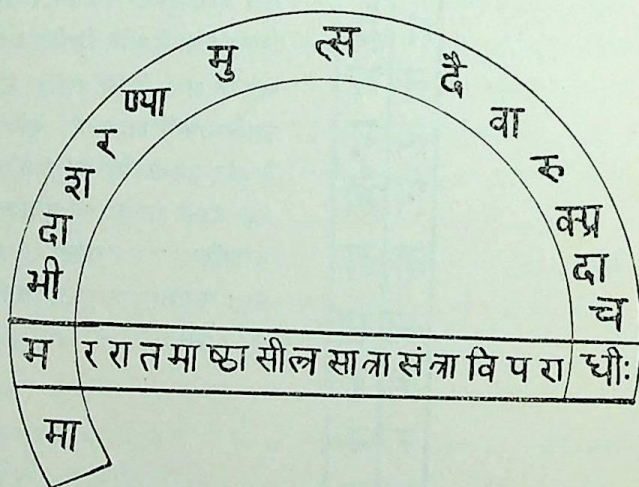 भी दा श र ण्या मु त्स दै वा रु क्प्र दा च
म र रा त मा ष्ठा सी त्त्र सा त्रा सं त्रा वि प रा धीः
मा